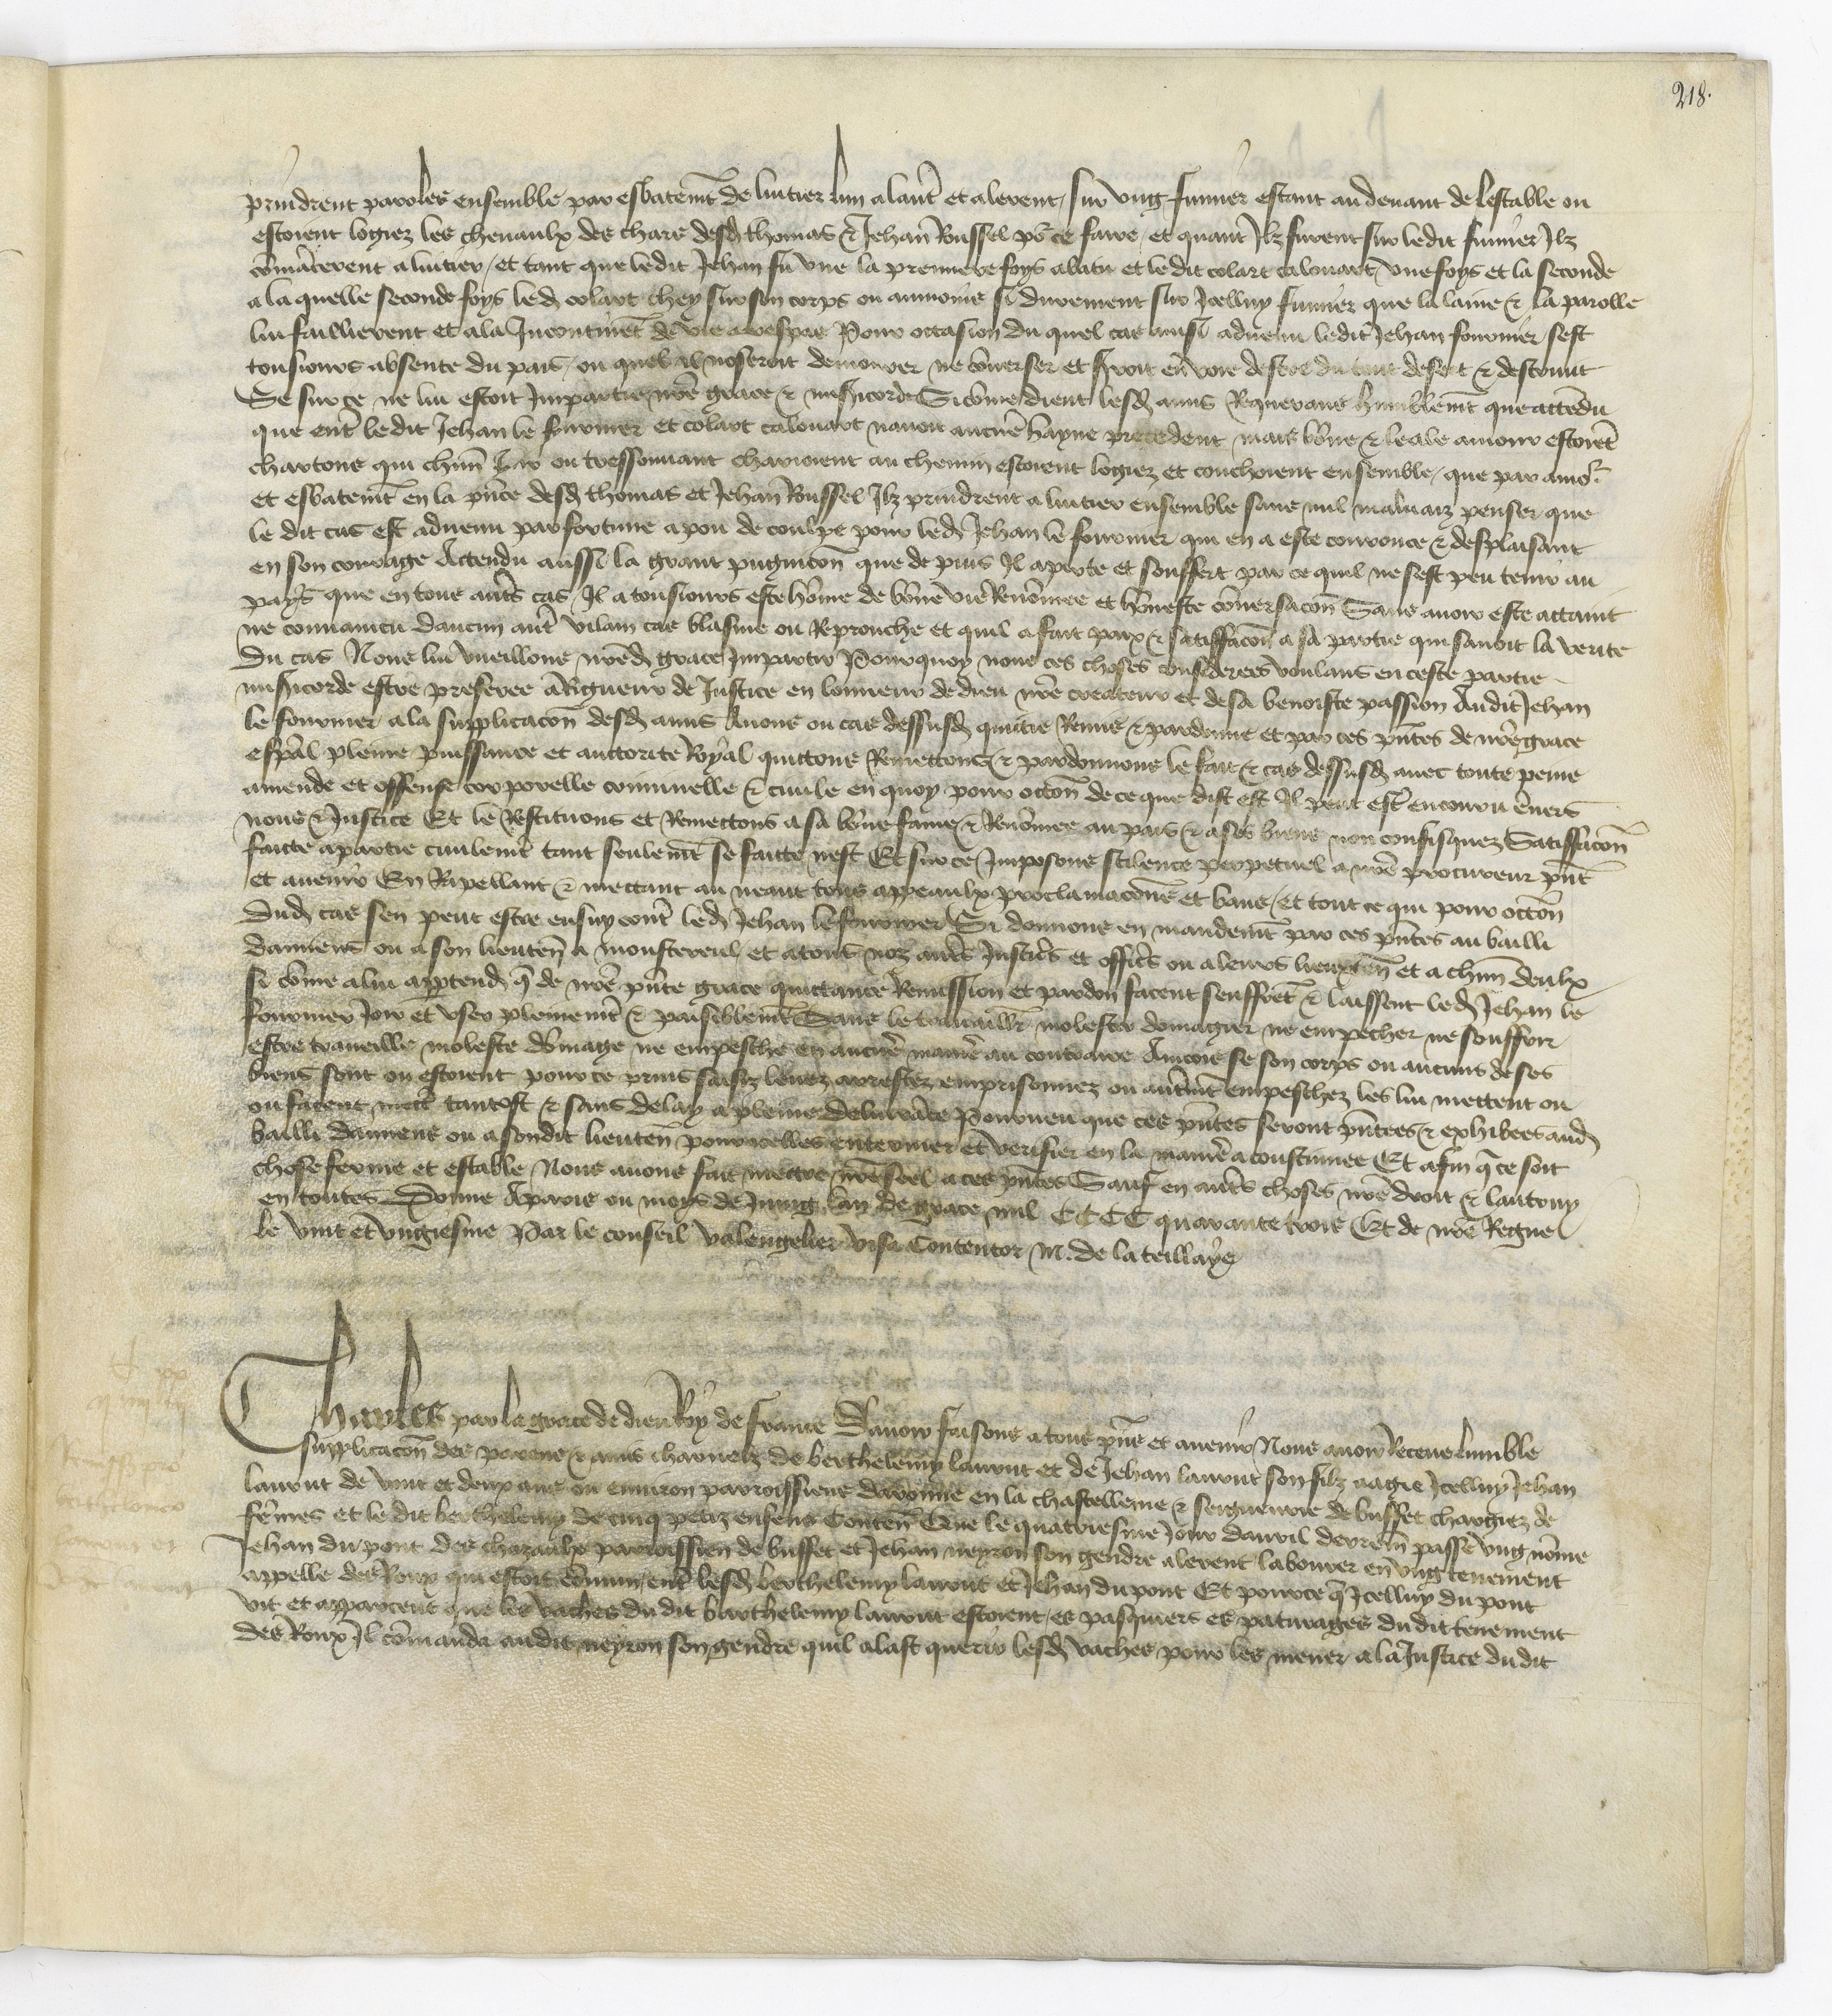 218.
prindrent paroles ensemble par esbatemt de luitier lun a laut et alerent sur ung fumier estant au devant de lestable ou
estoient logiez les chevaulx des chars desd thomas et Jehan Roussel po ce faire et quant Ilz furent sur ledit fumier Ilz
comancerent a luitier et tant que ledit Jehan fu une la premiere foys abatu et le dit colart calouart une foys et la seconde
a la quelle seconde foys led colart chey sur son corps ou aumoins si durement sur Icelluy fumier que la laine et la parolle
lui faillierent et ala Incontinet de vie a trespas Pour occasion du quel cas ainsi advenu ledit Jehan fournier sest
tousiours absente du pais ou quel il noseroit demourer ne converser et seroit en voie destre du tout desert et destruit
Se sur ce ne lui estoit Impartie nre grace et misericorde Si come dient lesd amis Requerans humblemt que attendu
que entr ledit Jehan le fournier et colart calouart navoit aucune hayne precedent mais bonne et leale amour estoiet
chartons qui chun Jour ou tressouvant charioient au chemin estoient logiez et couchoient ensemble que par amor
et esbatemt en la pnce desd thomas et Jehan Roussel Ilz prindrent a luitier ensemble sans nul malvaiz penser que
le dit cas est advenu par fortune a pou de coulpe pour led Jehan le fournier qui en a este courouce et desplaisant
en son courage Attendu aussi la grant pugnicon que de puis Il a porte et souffert par ce quil ne sest peu tenir au
pays que en tous auts cas Il a tousiours este home de bone vie Renomee et honeste conversacon Sans avoir este attaint
ne convaincu daucun aut vilain cas blasme ou Reprouche et quil a fait paix et satiffacon a sa partie qui savoit la verite
du cas Nous lui vueillons nred grace Impartir Pourquoy nous ces choses considerees voulans en ceste partie
misericorde estre preferee a Rigueur de Justice en lonneur de dieu nre createur et de sa benoiste passion Audit Jehan
le fournier a la supplicacon desd amis Avons ou cas dessusd quitie Remis et pardonne et par ces pntes de nre grace
espal pleine puissance et auctorite Royal quittons Remettons et pardonnons le fait et cas dessusd avec toute peine
amende et offense corporelle criminelle et civile en quoy pour occon de ce que dist est Il peut estr encouru envers
nous et Justice Et le Restituons et Remettons a sa bone fame et Renomee au pais et a ses biens non confisquez Satiffacon
faicte a partie civilemt tant seulemt se faitte nest Et sur ce Imposons scilence perpetuel a nre procureur pnt
et avenir En Rapellant et mettant au neant tous appeaulx proclamacons et bans et tout ce qui pour occon
dud cas sen peut estre ensuy contr led Jehan le fournier Si donnons en mandemt par ces pntes au bailli
damiens ou a son lieuten a monstereul et a tous noz auts Justics et officrs ou a leurs lieuxten et a chun deulx
si come a lui appartendr q de nre pnte grace quictance Remission et pardon facent seuffret et laissent led Jehan le
fournier Joir et user plainemt et paisiblemt Sans le travaillr molester domagier ne empecher ne souffrir
estre traveille moleste domage ne empesche en aucune manre au contraire Aincois se son corps ou aucuns de ses
biens sont ou estoient pour ce prins saisiz levez arrestez emprisonnez ou autremt empeschez les lui mettent ou
ou facent mectr tantost et sans delay a pleine delivrace Pourveu que ces pntes seront pntees et exhibees aud
bailli damiens ou a sondit lieuten pour icelles enteriner et verifier en la manre acoustumee Et afin q ce soit
chose ferme et estable Nous avons fait mettre nre seel a ces pntes Sauf en auts choses nre droit et lautruy
en toutes Donne A paris ou moys de Juing lan de grace mil CCCC quarante trois Et de nre Regne
le vint et ungiesme Par le conseil valengelier Visa Contentor M. de la teillaye
Charles par la grace de dieu Roy de france Savoir faisons a tous pns et avenir Nous avoir Receue lumble
supplicacon des parens et amis charnelz de berthelemy laurut et de Jehan laurut son filz aagie Icelluy Jehan
laurut de vint et deux ans ou environ parroissiens daronne en la chastellenie et seigneurie de busset chargiez de
femes et le dit berthelemy de cinq petiz enfens Conten Que le quatriesme Jour davril derrem passe ung nome
Jehan du pont des chazaulx parroissien de busset et Jehan neyron son gendre alerent labourer en ung tenement
appelle des Roux qui estoit comun entr lesd berthelemy laurut et Jehan du pont Et pour ce q Icelluy du pont
vit et apparceut que les vaches du dit berthelemy laurut estoient es pasquiers es paturages du dit tenement
des Roux Il comanda audit neyron son gendre quil alast querir lesd vaches pour les mener a la Justice du dit